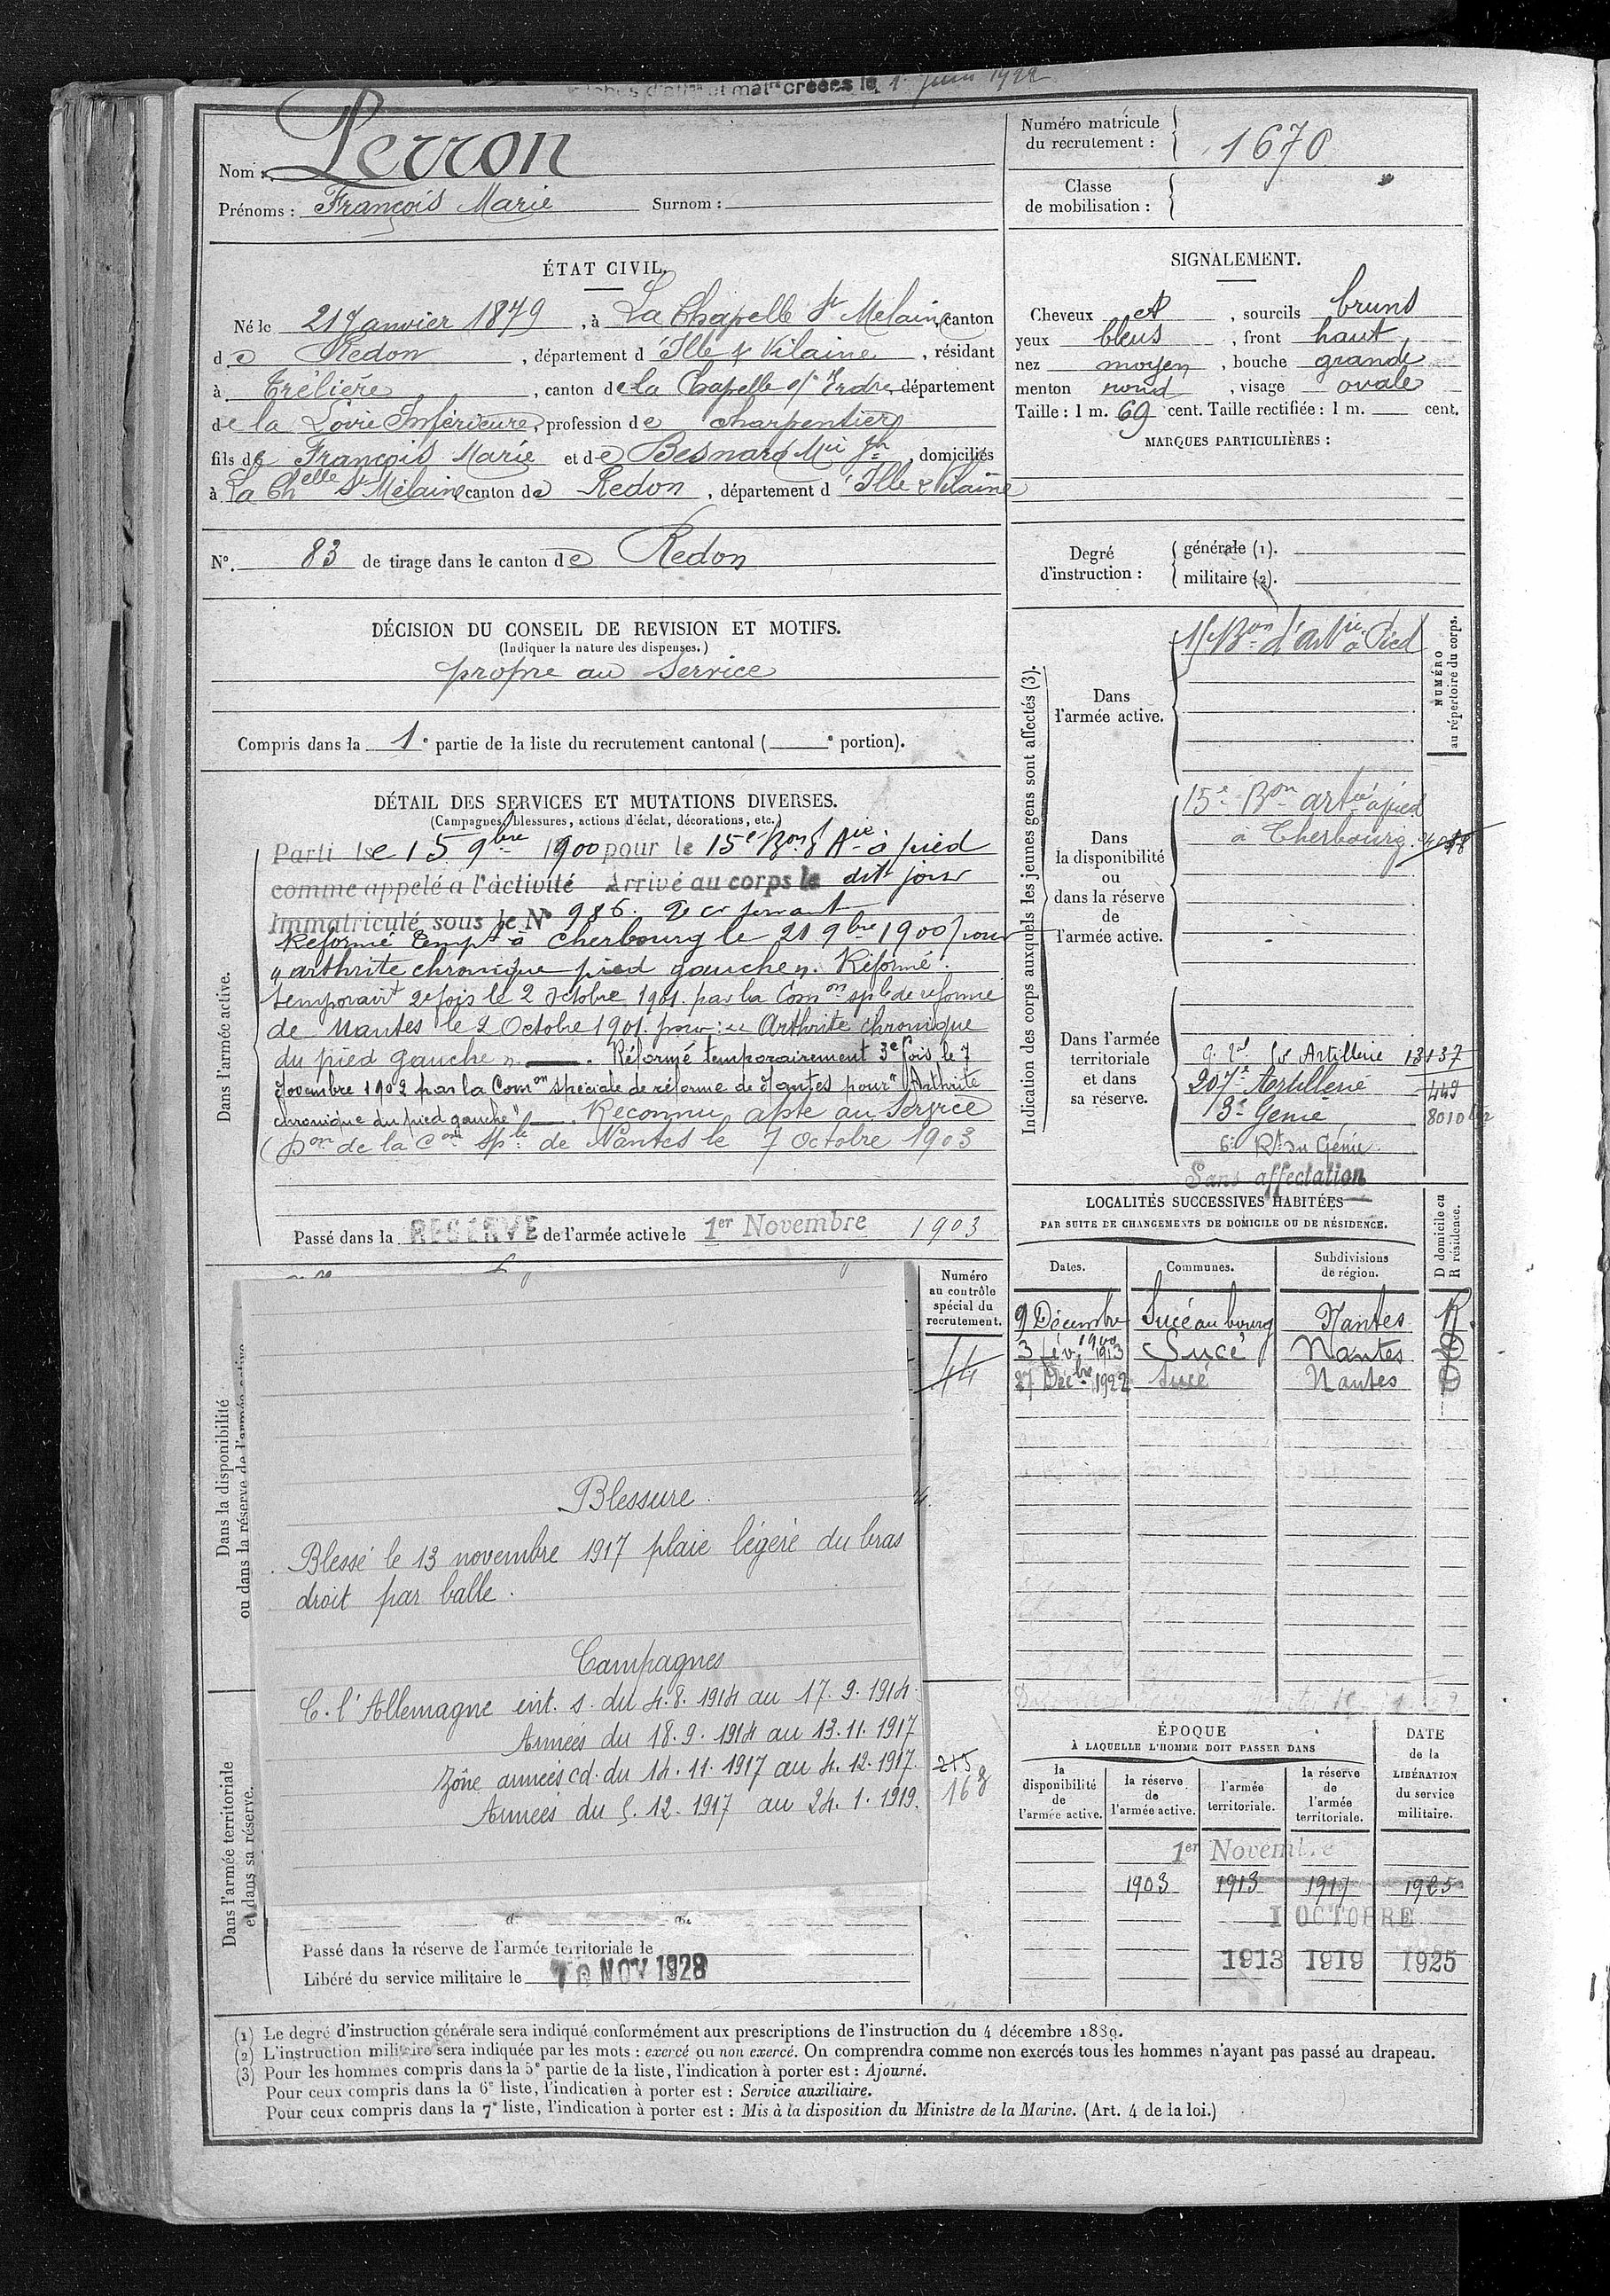 créées le 1er juin 1922
Nom : Perron
Prénoms : François Marie Surnom :
Numéro matricule
du recrutement : 1670
Classe
de mobilisation :
ÉTAT CIVIL.
Né le 21 Janvier 1879, à La Chapelle St Melaine, canton
de Redon, département d'Ille & Vilaine, résidant
à Trélière, canton de la Chapelle s/ Erdre, département
de la Loire Inférieure, profession de charpentier
fils de François Marie et de Besnard Mie Jh, domiciliés
à La Chelle St Mélaine canton de Redon, département d'Ille & Vilaine
SIGNALEMENT.
Cheveux et, sourcils bruns
yeux bleus, front haut
nez moyen, bouche grande
menton rond, visage ovale
Taille : 1 m. 69 cent. Taille rectifiée : 1 m. cent.
MARQUES PARTICULIÈRES :
No. 83 de tirage dans le canton de Redon
Degré
d'instruction :
générale (1).
militaire (2).
DÉCISION DU CONSEIL DE REVISION ET MOTIFS.
(Indiquer la nature des dispenses.)
propre au service
Compris dans la 1e partie de la liste du recrutement cantonal ( e portion).
DÉTAIL DES SERVICES ET MUTATIONS DIVERSES.
(Campagnes, blessures, actions d'éclat, décorations, etc.)
Dans l'armée active.
Parti le 15 9bre 1900 pour le 15e Bon d'Aie à pied
comme appelé à l'activité Arrivé au corps le dit jour
Immatriculé sous le No 986. 2e cr servant
Réformé tempt à Cherbourg le 21 9bre 1900 pour
"arthrite chronique pied gauche". Réformé
temporairt 2e fois le 2 octobre 1901 par la Comon sple de réforme
de Nantes le 2 Octobre 1901 pour : "Arthrite chronique
du pied gauche". Réformé temporairement 3e fois le 7
Novembre 1902 par la Comon spéciale de réforme de Nantes pour "Arthrite
chronique du pied gauche". Reconnu apte au Service
(Don de la Con Sple de Nantes le 7 Octobre 1903
Passé dans la RÉSERVE de l'armée active le 1er Novembre 1903
Indication des corps auxquels les jeunes gens sont affectés (3).
NUMÉRO
au répertoire du corps.
Dans
l'armée active.
15e Bon d'Artie à Pied
Dans
la disponibilité
ou
dans la réserve
de
l'armée active.
15e Bon artie à pied
à Cherbourg
Dans l'armée
territoriale
et dans
sa réserve.
Artillerie 13137
207e Artillerie 449
3e Génie 8010
6e Rt du Génie
Sans affectation
LOCALITÉS SUCCESSIVES HABITÉES
PAR SUITE DE CHANGEMENTS DE DOMICILE OU DE RÉSIDENCE.
D domicile ou
R résidence.
Dates. Communes. Subdivisions
de région.
9 Décembre 1900 Sucé au bourg Nantes R.
3 fév. 1913 Sucé Nantes D
27 Décbre 1922 Sucé Nantes D
Numéro
au contrôle
spécial du
recrutement.
44
Dans la disponibilité
ou dans la réserve de l'armée active
Blessure.
Blessé le 13 novembre 1917 plaie légère du bras
droit par balle.
Campagnes
C. l'Allemagne int. s. du 4.8.1914 au 17.9.1914
Armées du 18.9.1914 au 13.11.1917
Zône armées cd. du 14.11.1917 au 4.12.1917.
Armées du 5.12.1917 au 24.1.1919.
215
168
Dans l'armée territoriale
et dans sa réserve.
Passé dans la réserve de l'armée territoriale le
Libéré du service militaire le 10 NOV 1928
ÉPOQUE
À LAQUELLE L'HOMME DOIT PASSER DANS
DATE
de la
LIBÉRATION
du service
militaire.
la
disponibilité
de
l'armée active.
la réserve
de
l'armée active.
l'armée
territoriale.
la réserve
de
l'armée
territoriale.
1er Novembre
1903 1913 1919 1925
1 OCTOBRE
1913 1919 1925
(1) Le degré d'instruction générale sera indiqué conformément aux prescriptions de l'instruction du 4 décembre 1889.
(2) L'instruction militaire sera indiquée par les mots : exercé ou non exercé. On comprendra comme non exercés tous les hommes n'ayant pas passé au drapeau.
(3) Pour les hommes compris dans la 5e partie de la liste, l'indication à porter est : Ajourné.
Pour ceux compris dans la 6e liste, l'indication à porter est : Service auxiliaire.
Pour ceux compris dans la 7e liste, l'indication à porter est : Mis à la disposition du Ministre de la Marine. (Art. 4 de la loi.)